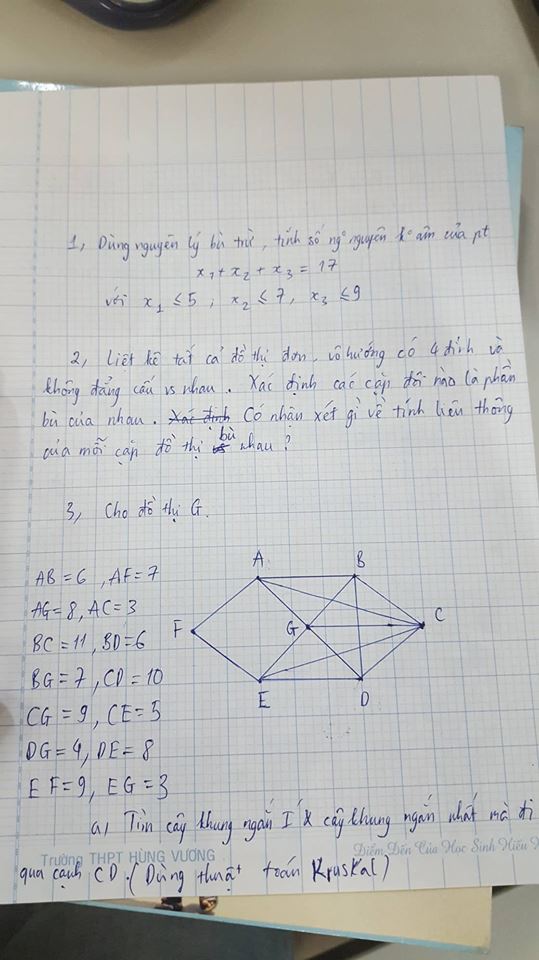 1, Dùng nguyên lý bù trừ, tính số ng° nguyên k° âm của pt
x₁ + x₂ + x₃ = 17
với x₁ ≤ 5 , x₂ ≤ 7, x₃ ≤ 9
2, Liệt kê tất cả đồ thị đơn, vô hướng có 4 đỉnh và
không đẳng cấu vs nhau. Xác định các cặp đôi nào là phần
bù của nhau. Xác định Có nhận xét gì về tính liên thông
của mỗi cặp đồ thị bù nhau?
3, Cho đồ thị G.
AB = 6 , AF = 7
AG = 8, AC = 3
BC = 11, BD = 6
BG = 7 , CD = 10
CG = 9, CE = 5
DG = 4, DE = 8
EF = 9, EG = 3
A
B
C
F
G
E
D
a, Tìm cây khung ngắn I' & cây khung ngắn nhất mà đi
Trường THPT HÙNG VƯƠNG
Điểm Đến Của Học Sinh Hiếu
qua cạnh CD. (Dùng thuật toán Kruskal)